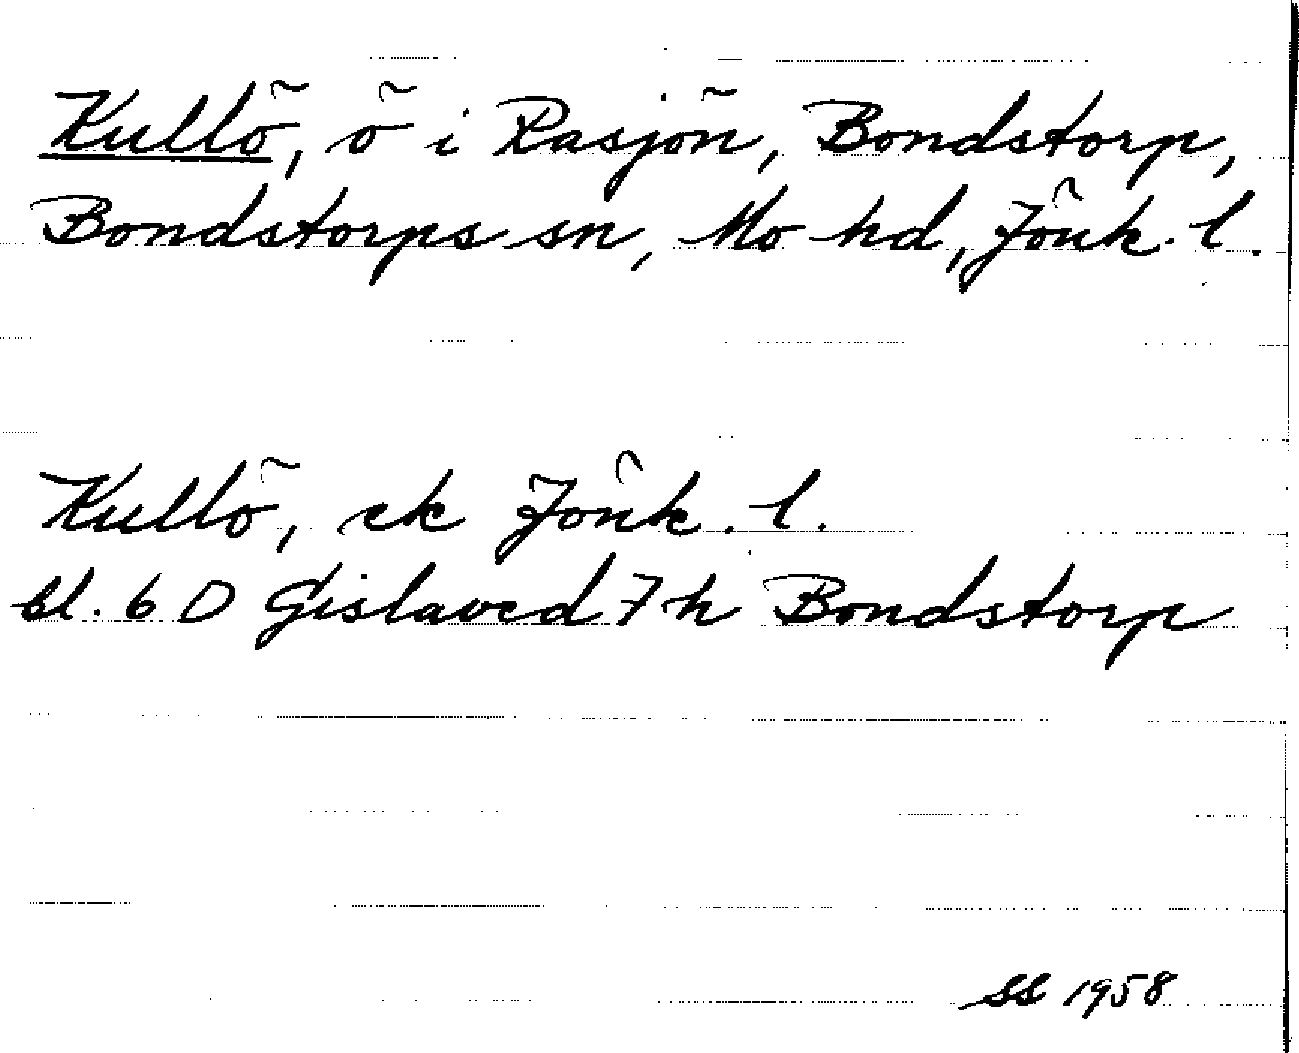 Kullö, ö i Rasjön, Bondstorp,
Bondstorps sn, Mo hd, Jönk. l.
Kullö, ek Jönk. l.
bl. 6 D Gislaved 7 h Bondstorp
SS 1958